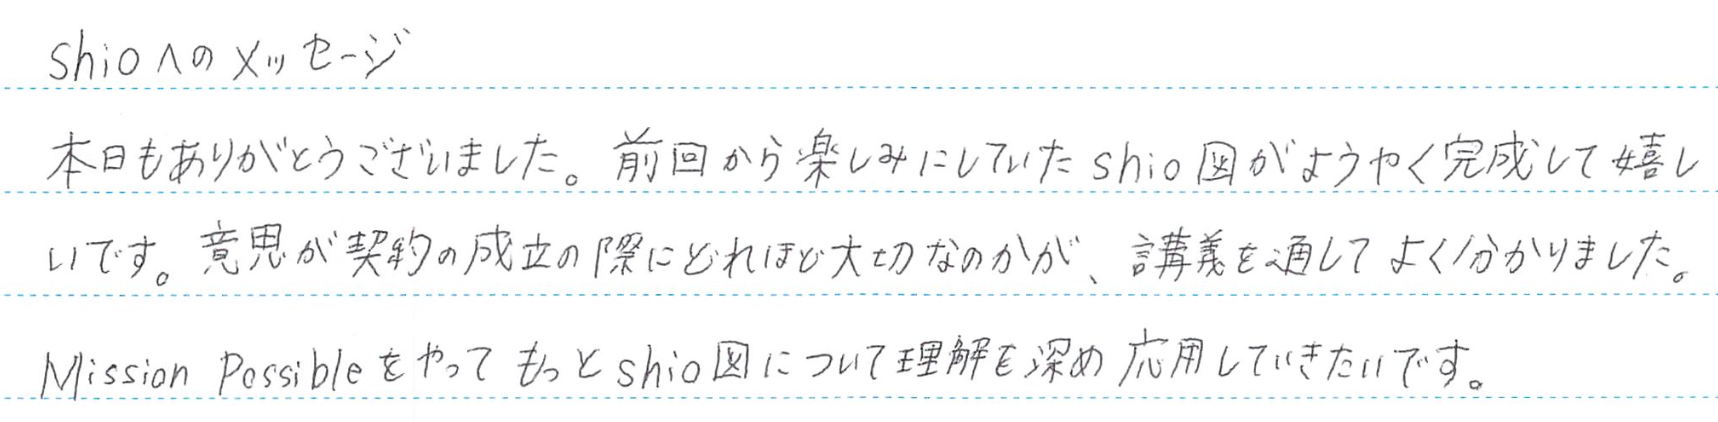 shioへのメッセージ
本日もありがとうございました。前回から楽しみにしていたshio図がようやく完成して嬉し
いです。意思が契約の成立の際にどれほど大切なのかが、講義を通してよく分かりました。
Mission Possibleをやってもっとshio図について理解を深め応用していきたいです。